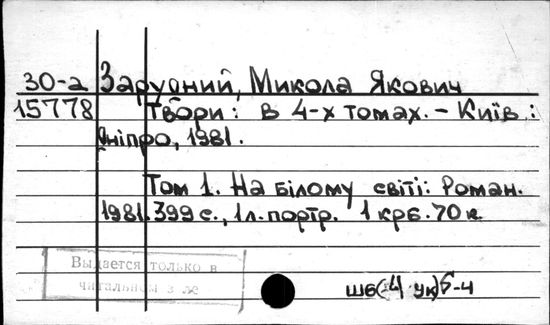 30-а Зарудний, Микола Якович
15778 Твори: в 4-х томах. – Київ:
Дніпро, 1981.
Том 1. На білому світі: Роман.
1981. 399 с., 1л. портр. 1 крб. 70 к.
Выдается только в
читальном з ле
шб(-4 ук) 5-4